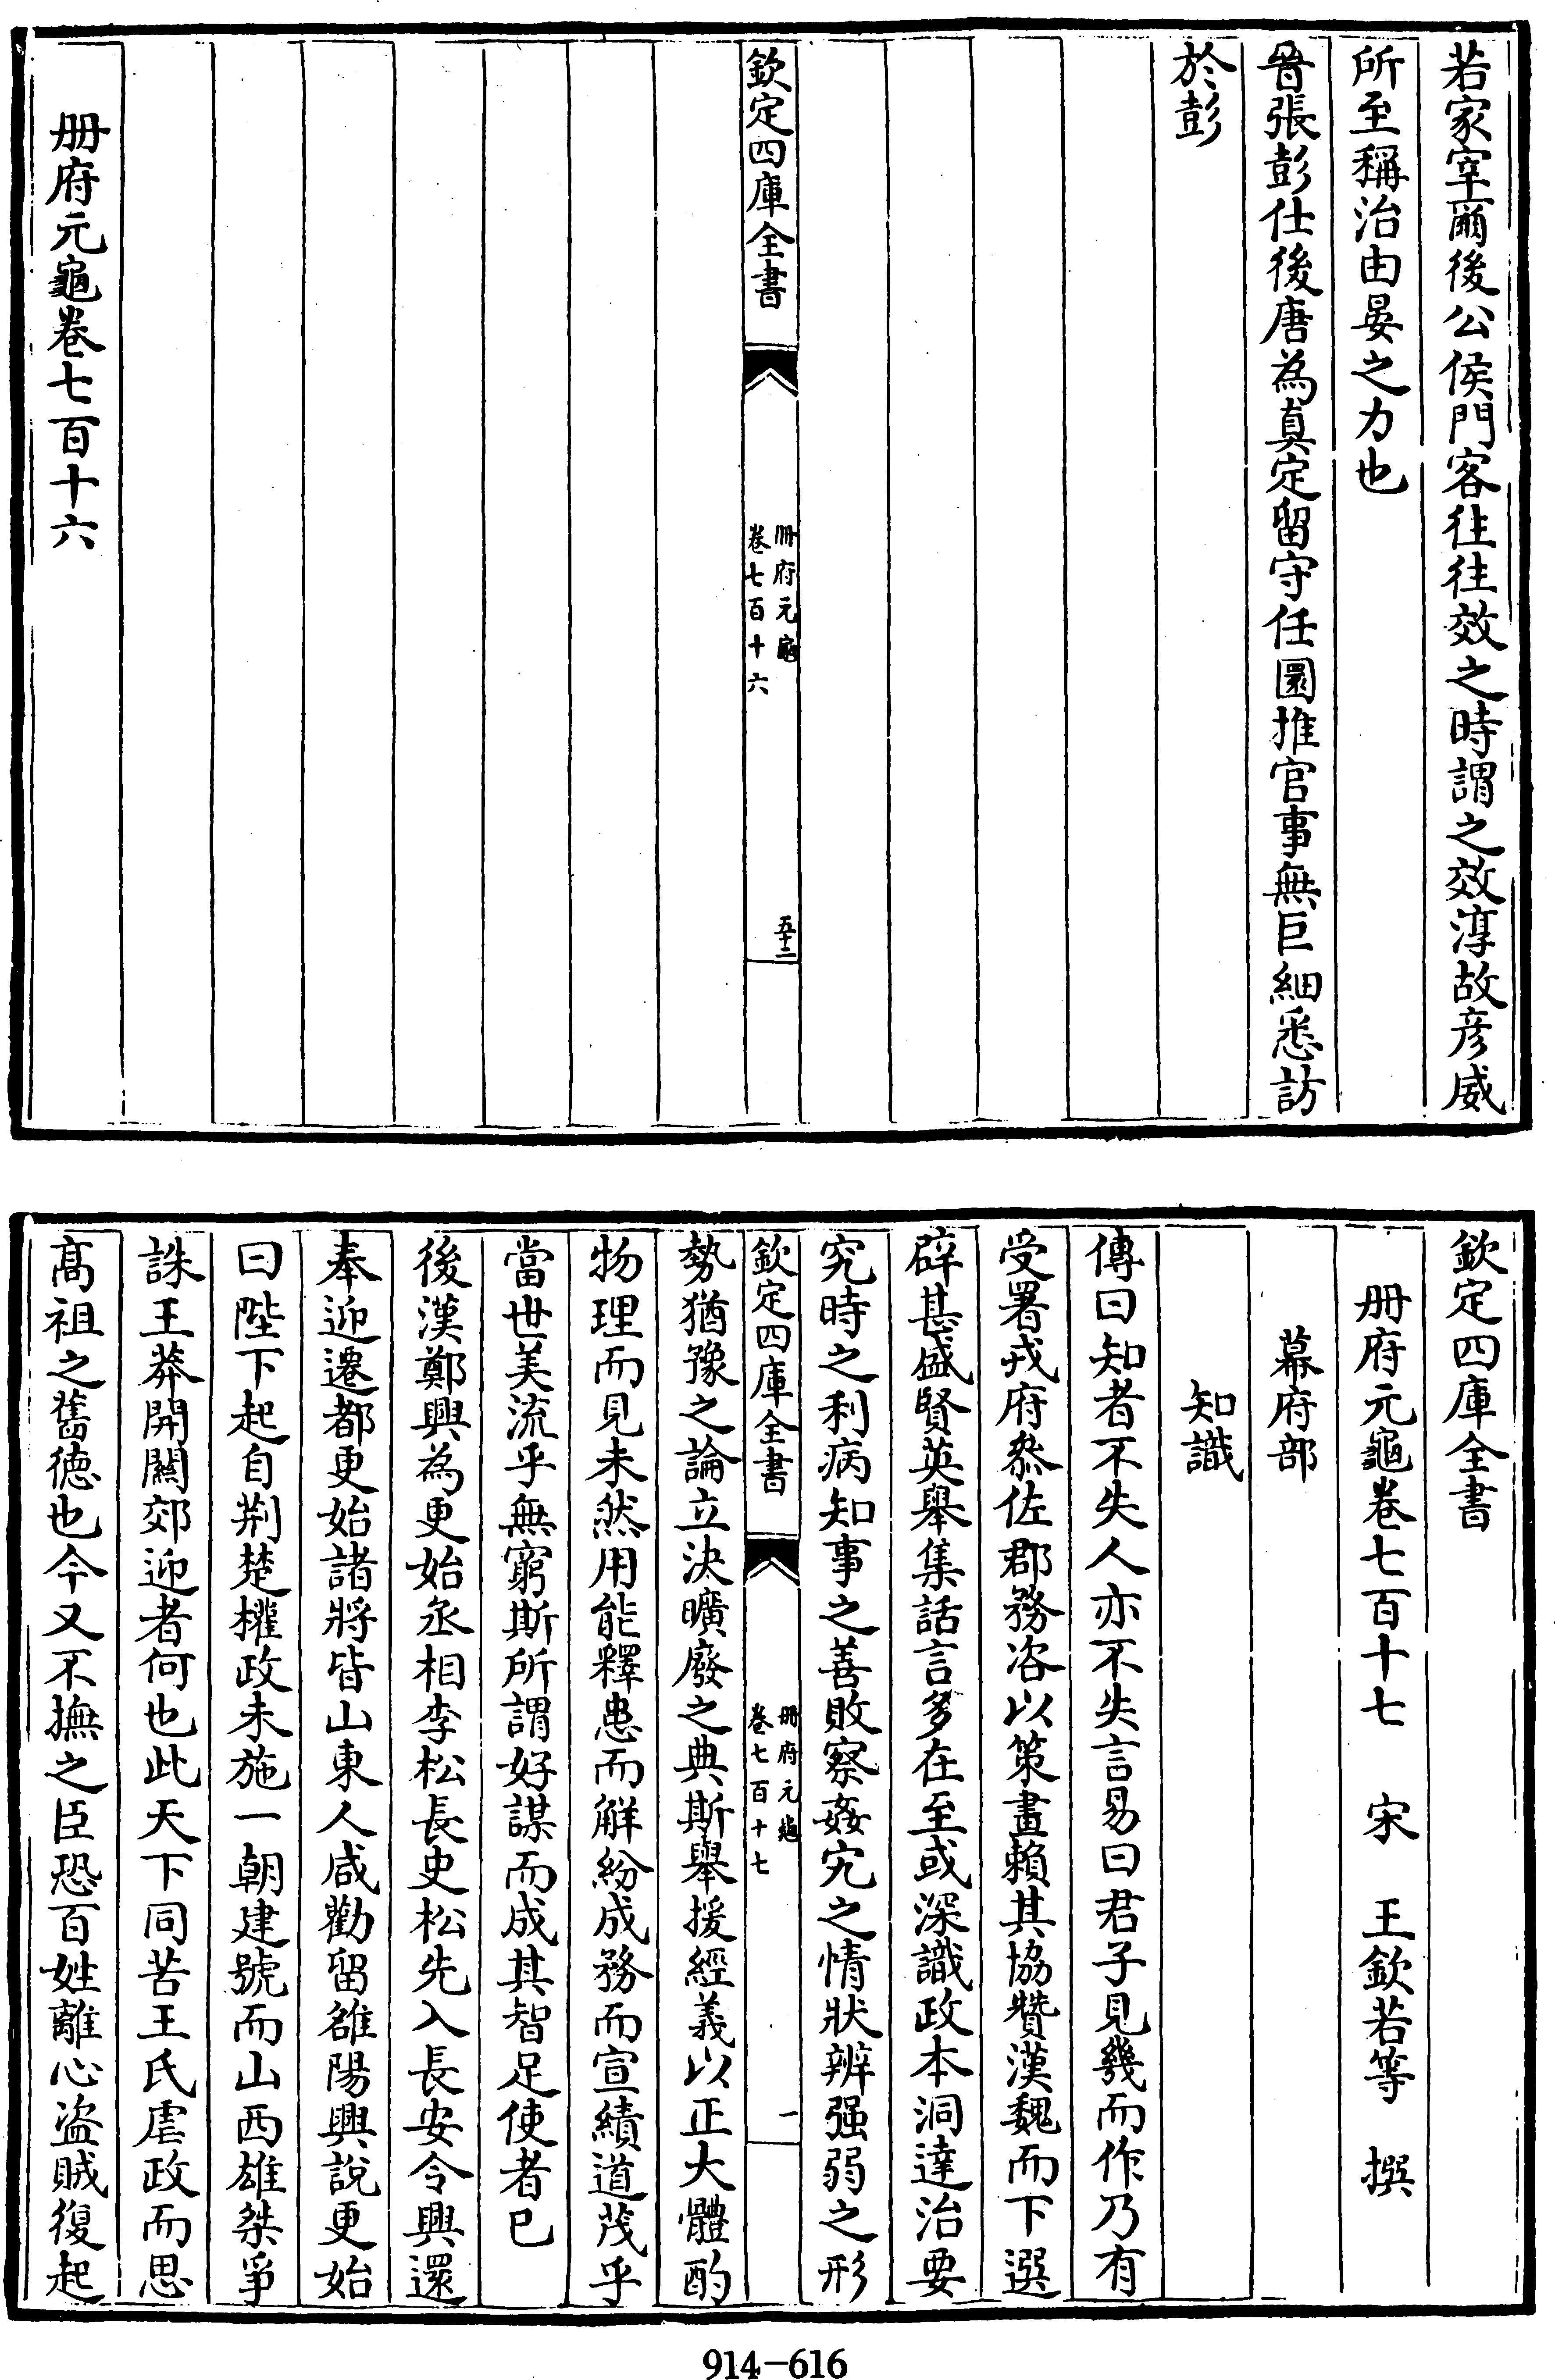 若家宰爾後公侯門客往往效之時謂之效淳故彦威
所至稱治由晏之力也
晉張彭仕後唐為真定留守任圜推官事無巨細悉訪
於彭
欽定四庫全書
册府元龜
卷七百十六
五十二
册府元龜卷七百十六
欽定四庫全書
册府元龜卷七百十七 宋 王欽若等 撰
幕府部
知識
傳曰知者不失人亦不失言易曰君子見幾而作乃有
受署戎府叅佐郡務咨以策畫賴其協贊漢魏而下選
辟甚盛賢英舉集話言多在至或深識政本洞達治要
究時之利病知事之善敗察姦宄之情狀辨强弱之形
欽定四庫全書
册府元龜
卷七百十七
一
勢猶豫之論立決曠廢之典斯舉援經義以正大體酌
物理而見未然用能釋患而解紛成務而宣績道茂乎
當世美流乎無窮斯所謂好謀而成其智足使者已
後漢鄭興為更始丞相李松長史松先入長安令興還
奉迎遷都更始諸將皆山東人咸勸留雒陽興說更始
曰陛下起自荆楚權政未施一朝建號而山西雄桀爭
誅王莽開關郊迎者何也此天下同苦王氏虐政而思
髙祖之舊徳也今又不撫之臣恐百姓離心盗賊復起
914-616